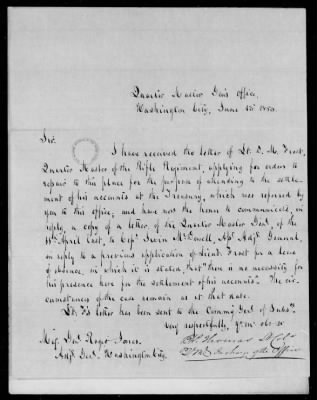 Quarter Master Gen's Office,
Washington City, June 15th 1850.
Sir.
I have received the letter of Lt. D. M. Frost,
Quarter Master of the Rifle Regiment, applying for orders to
repair to this place for the purpose of attending to the settle-
ment of his accounts at the Treasury, which was referred by
you to this office, and have now the honor to communicate, in
reply, a copy of a letter of the Quarter Master Genl. of the
April last, to Capt. Irvin McDowell, Ast. Adjt. General,
in reply to a previous application of Lieut. Frost for a leave
of absence, in which it is stated, that "there is no necessity for
his presence here for the settlement of his accounts." The cir-
cumstances of the case remain as at that date.
Lt. F's letter has been sent to the Commy. Genl. of Subs.
Very respectfully, Yr. ob. st.
Chs. Thomas
In charge of the Office
Maj. Genl. Roger Jones.
Adjt. Genl. Washington City.